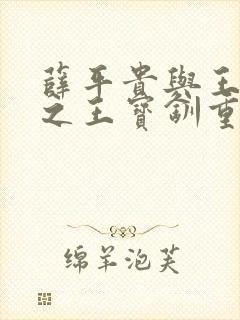 薛平貴與王
之王寶釧重
绵羊泡芙